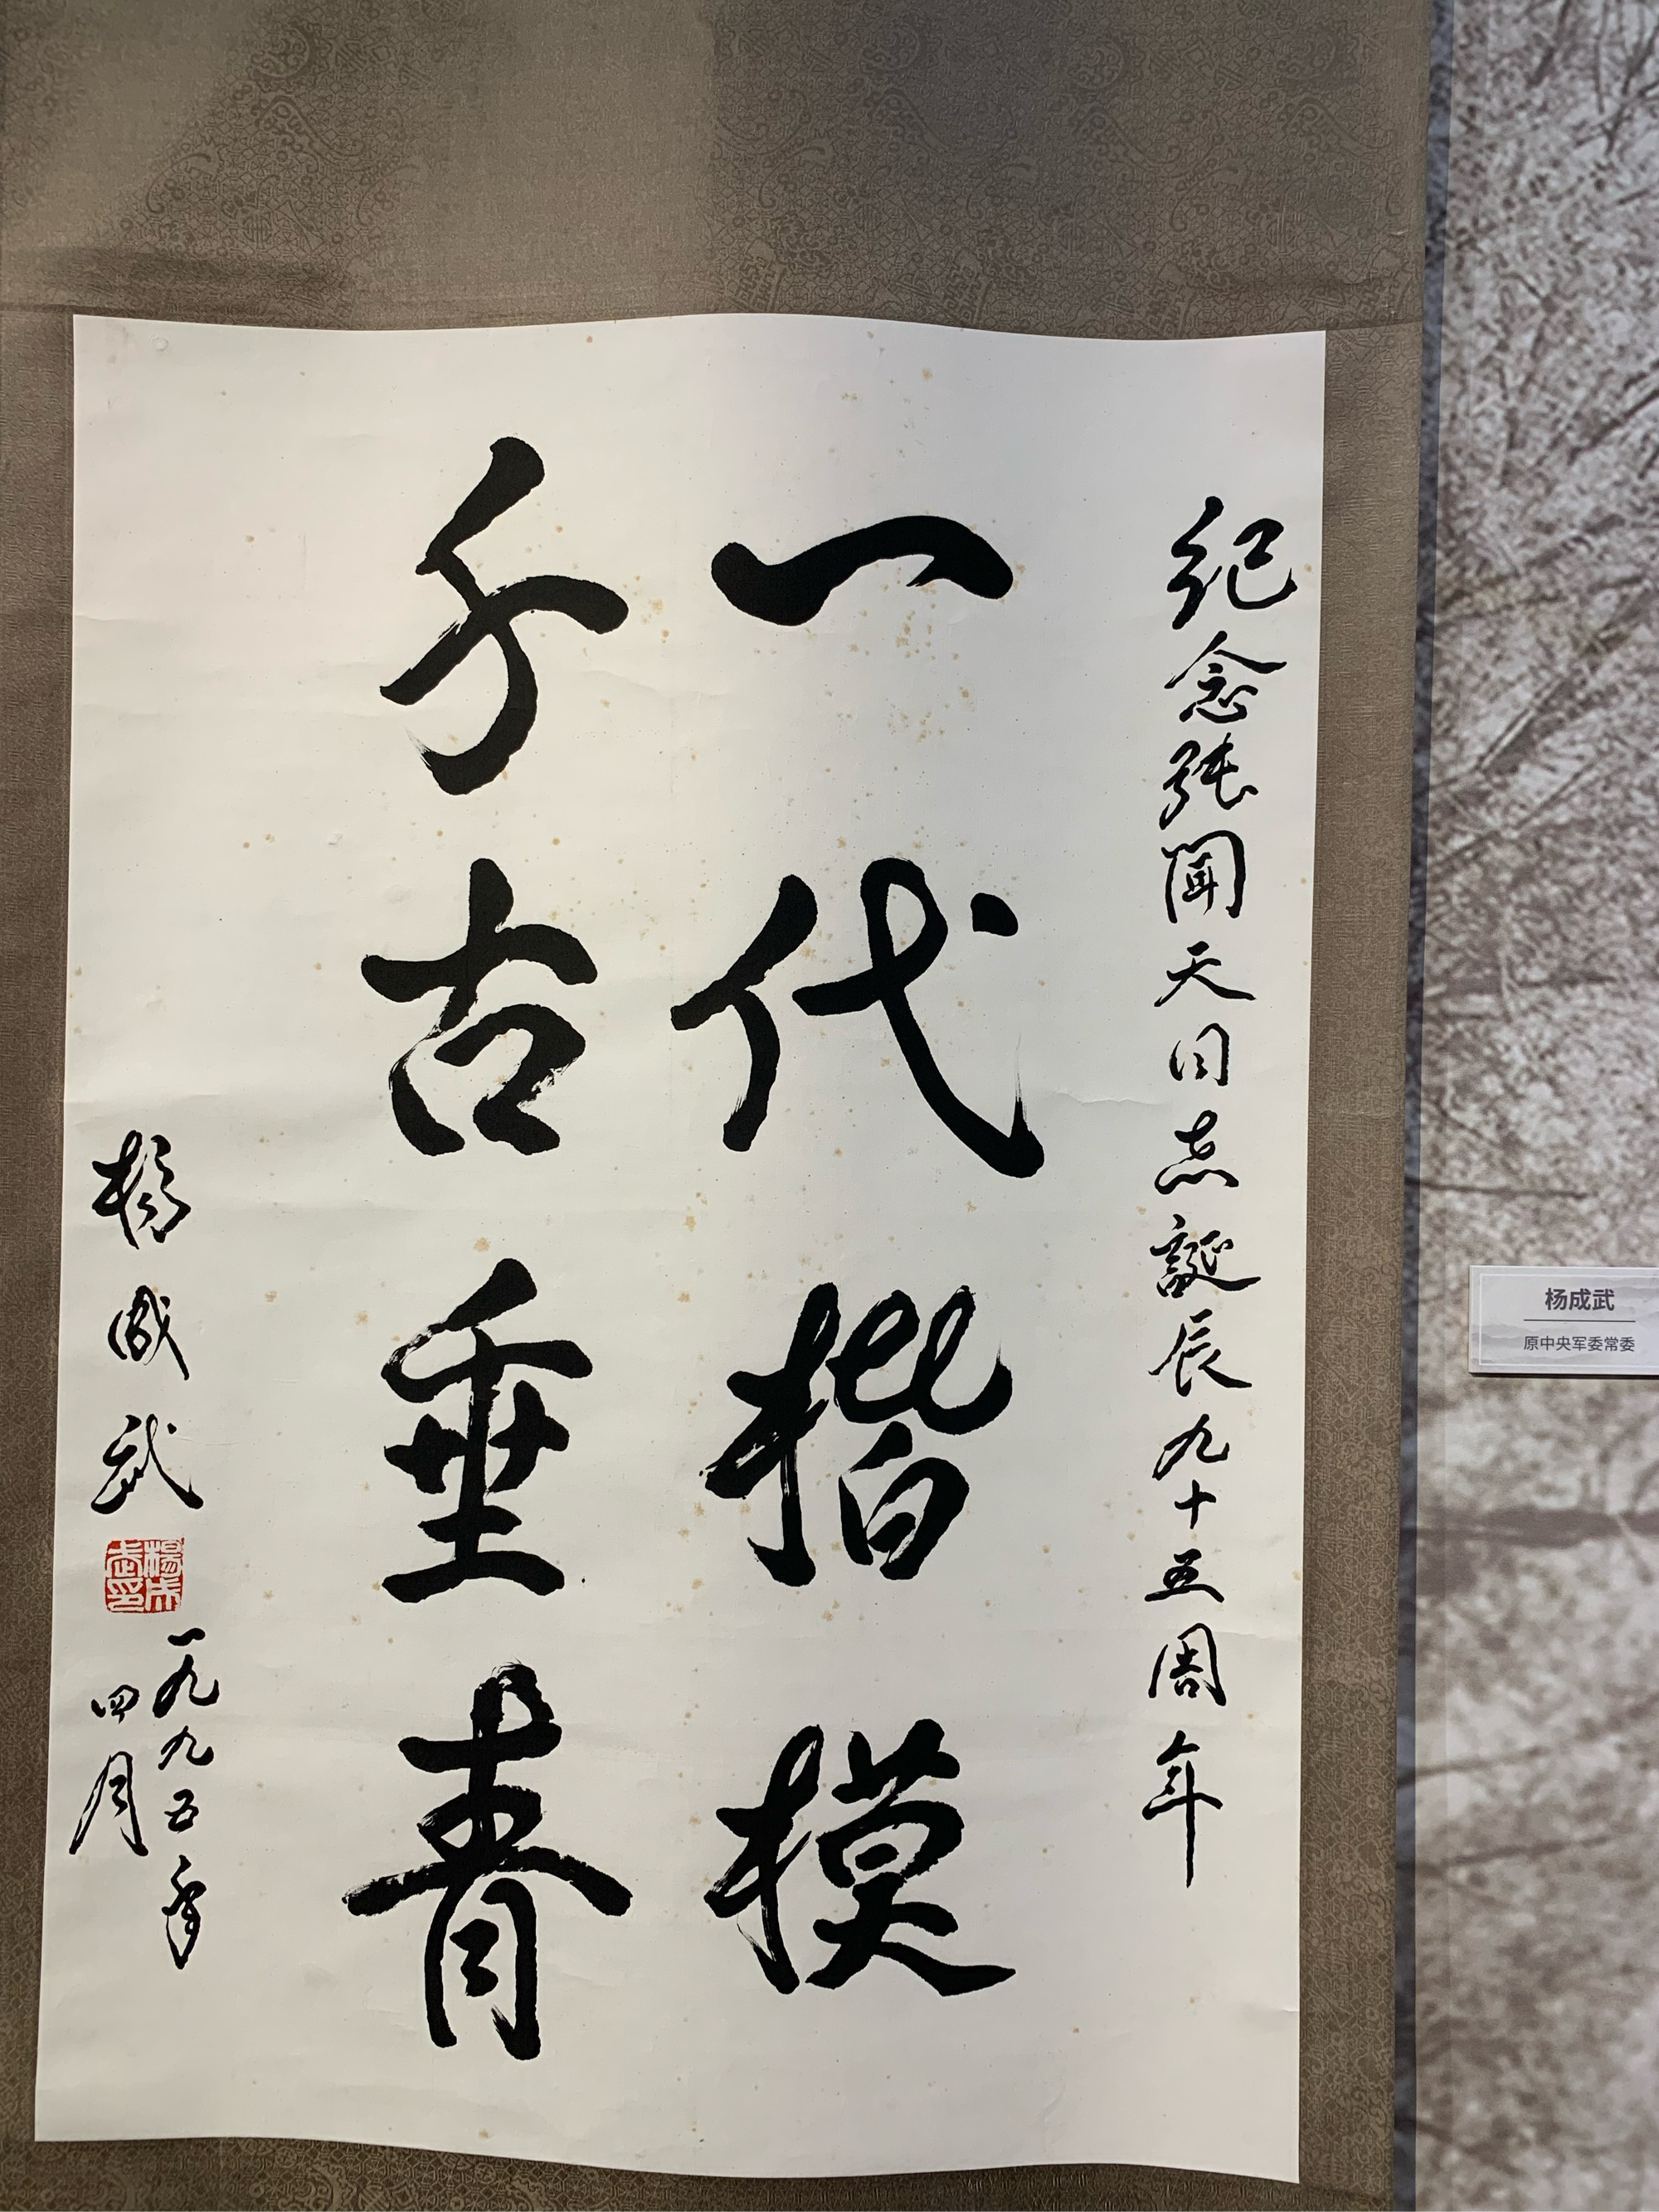 纪念張聞天同志誕辰九十五周年
一代楷模
千古垂青
楊成武
楊成武印
一九九五年
四月
杨成武
原中央军委常委